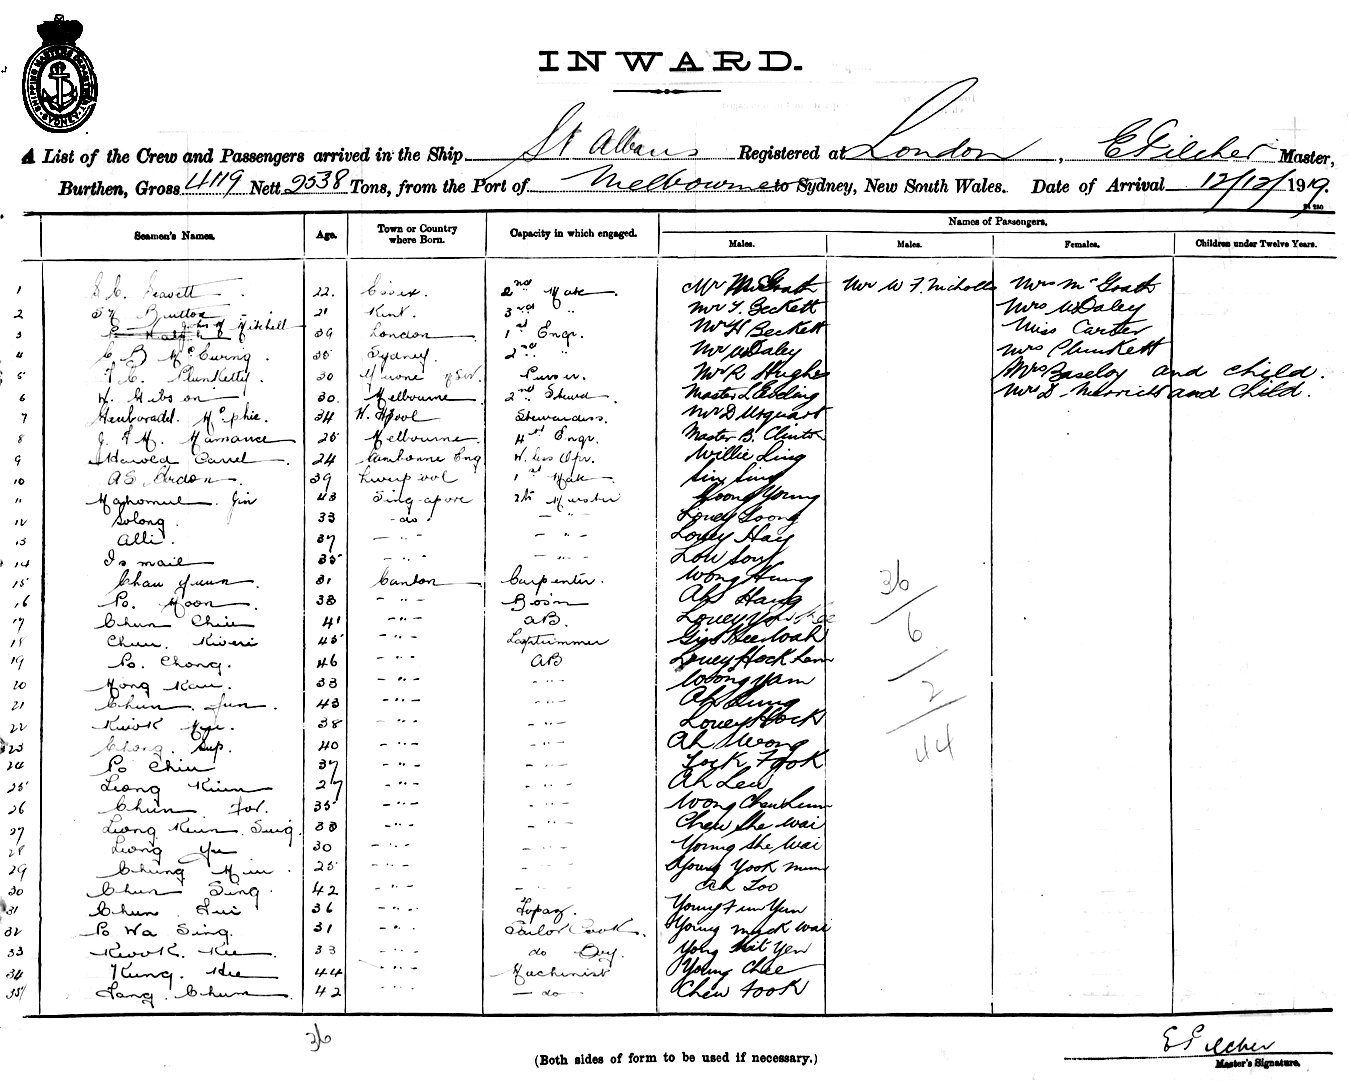 SHIPPING MASTERS DEPARTMENT SYDNEY
INWARD.
A List of the Crew and Passengers arrived in the Ship St Albans Registered at London, E Pilcher Master,
Burthen, Gross 4119 Nett 2538 Tons, from the Port of Melbourne to Sydney, New South Wales. Date of Arrival 12/12/1919.
Names of Passengers.
Seamen's Names. Age. Town or Country where Born. Capacity in which engaged. Males. Males. Females. Children under Twelve Years.
1 22 Essex. 2nd Mate Mr McGrath Mr W F. Nicholls Mrs McGrath
2 Brutton 21 Kent. 3rd " Mr F. Beckett Mrs W Daley
3 Mitchell 39 London 1st Engr. Mr H Beckett Miss Carter
4 35 Sydney. 2nd " Mr W Daley Mrs Plunkett
5 F. C. Plunkett. 30 Purser. Mr R Hughes Mrs Baseloy and child.
6 W. Gibson 30. Melbourne 2nd Steward Master L Efling Mrs D. Merrick and Child.
7 34 W. H'pool Stewardess. Mr D Urquart
8 25 Melbourne 4th Engr. Master B. Clinton
9 Harold Carrel. 24 Camborne Eng W. less Opr. Willie Ling
10 AS Ardon. 39 Liverpool 1st Mate Sin Sing
11 Mahomed. Jin 43 Singapore Goong Young
12 Solong. 33 - do - - " - Louey Goong
13 Alli. 37 - " - - " - Louey Hay
14 Ismail 35 - " - - " - Low Souy
15 Chau Yuun. 31 Canton Carpenter. Wong Hung
16 Po. Moon. 38 - " - Bo'sn Ah Hang
17 Chun Chiu 41 - " - AB. Louey You Kee
18 Chun. 45 - " - Lamptrimmer
19 Po. Chong. 46 - " - AB Louey Hock Lam
20 Mong Kau. 33 - " - - " - Wong Yam
21 Chun. Jun. 43 - " - - " - Ah Lung
22 Kwok 38 - " - - " - Louey Hock
23 Chong. Sup. 40 - " - - " - Ah Wong
24 Po Chiu 37 - " - - " - Lock Fook
25 Leong Kiun 27 - " - - " - Ah Leu
26 Chun. For. 35 - " - - " - Wong Chew Lum
27 Leong Keun. Sung. 38 - " - - " - Chew She Wai
28 Leong Yu 30 - " - - " - Young She Wai
29 Chung 25 - " - - " - Young Yook Mun
30 Chun Sing. 42 - " - - " - Ah Loo
31 Chun. Sui 36 - " - Topaz. Young Fun Yun
32 Po Wa Sing. 31 - " - Sailor Cook. Young Muck Wai
33 Kwok. Kee 33 - " - do Boy. Yong Mit Yen
34 Kung. Hee 44 - " - Machinist Young Chee
35 Fang. Chun 42 - do - Chew Fook
36
6
2
44
36
(Both sides of form to be used if necessary.)
E Pilcher
Master's Signature.